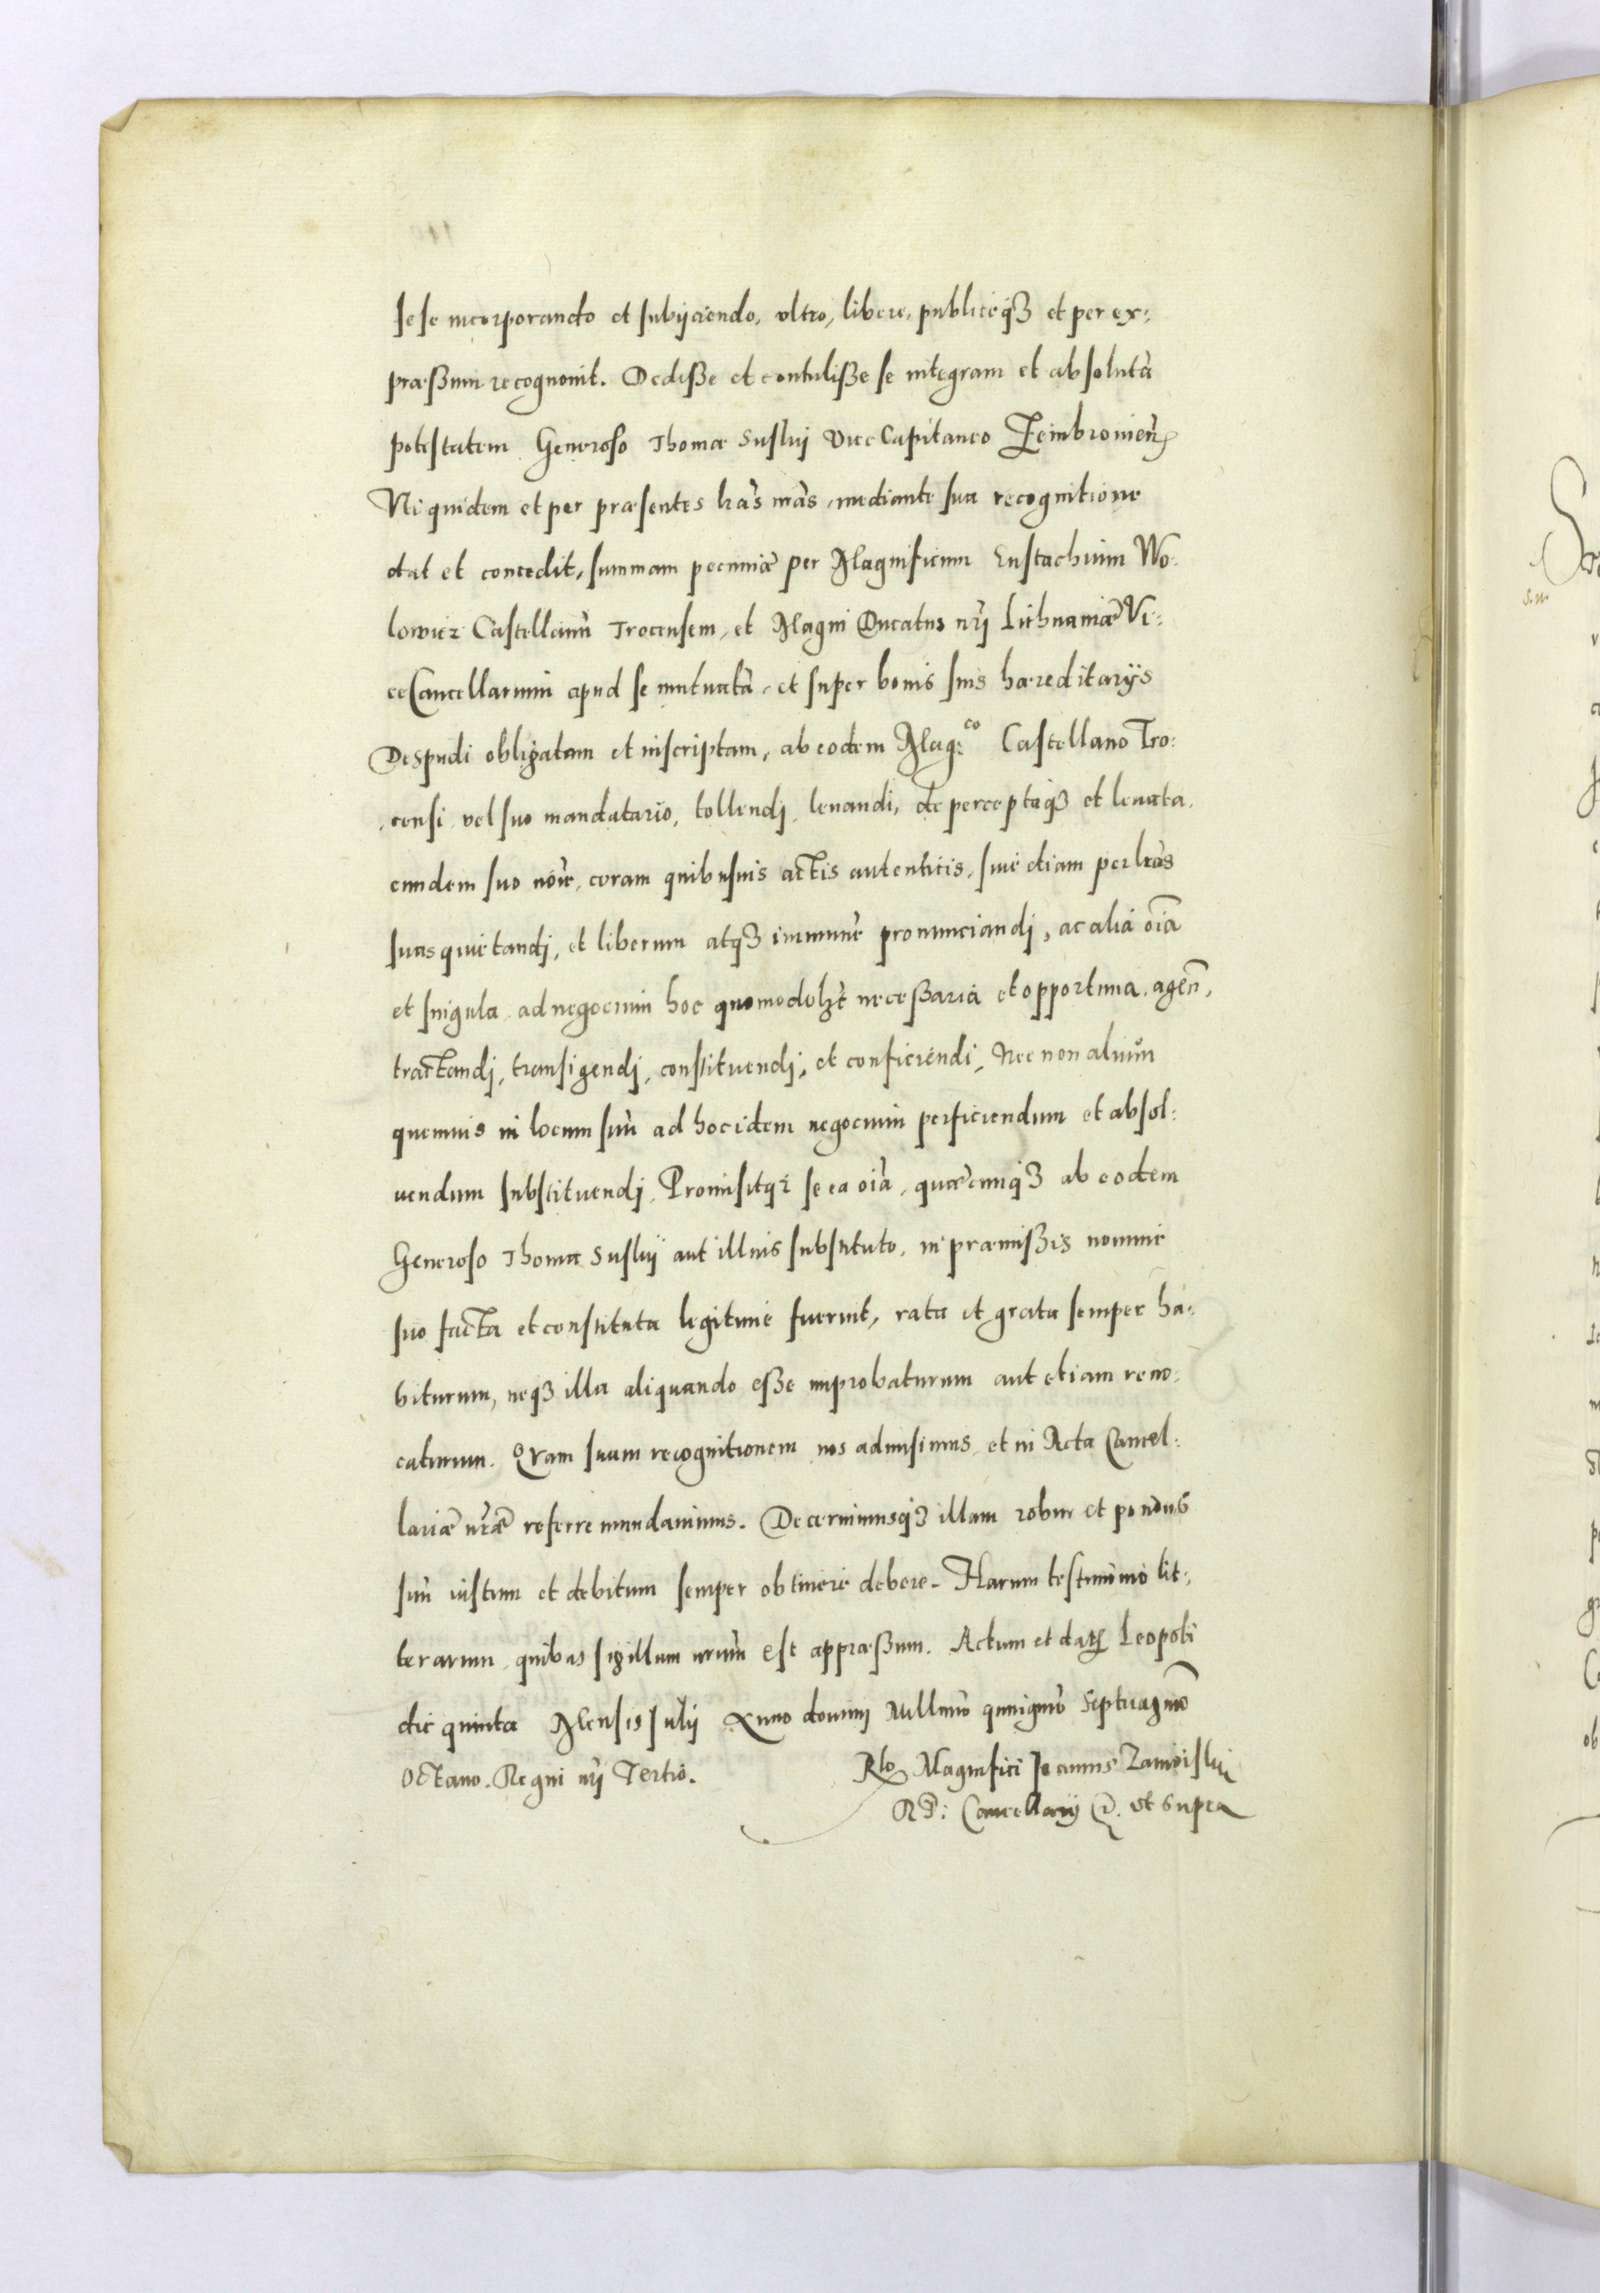 sese incorporando et subijciendo, vltro, libere, publiceq₃ et per ex:
præssum recognouit. Dedisse et contulisse se integram et absolutā
potestatem Generoso Thomæ Suslij Vice Capitaneo Zembronień
Vti quidem et per præsentes lrās nrās, mediante sua recognitione
dat et concedit, summam pecuniæ per Magnificum Eustachium Wo:
lowicz Castellanū Trocensem, et Magni Ducatus nrj Lithuaniæ Vi:
ceCancellarium apud se mutuatā, et super bonis suis hæreditarijs
Despudi obligatam et inscriptam, ab eodem Mag:co Castellano Tro:
censi vel suo mandatario, tollendj leuandi, de perceptaq₃ et leuata
eundem suo noīe, coram quibusuis actis autenticis, siue etiam per lrās
suas quietandj, et liberum atq₃ immunē pronunciandj, ac alia oīa
et singula ad negocium hoc quomodolzt necessaria et opportuna, agen̄,
tractandj, transigendj, constituendj, et conficiendi, Nec non aliūm
quemuis in locum suū ad hoc idem negocium perficiendum et absol:
uendum substituendj. Promisitq₃ se ea oīa, quæcunq₃ ab eodem
Generoso Thoma Suslij aut illius substituto, in præmissis nomine
suo facta et constituta legitime fuerint, rata et grata semper ha:
biturum, neq₃ illa aliquando esse improbaturum aut etiam reuo:
caturum. Qram suam recognitionem nos admisimus et in Acta Cancel:
lariæ nræ referre mandauimus. Decernimusq₃ illam robur et pondus
suū iustum et debitum semper obtinere debere. Harum testimonio lit:
terarum quibus sigillum nrum est appræssum. Actum et datꝭ Leopoli
die quinta Mensis Julij Anno dominj Millmō quingmō Septuagmō
Octauo. Regni nrj Tertio.
Rlō Magnifici Joannis Zamoiskij
R P: Cancellarij &. vt supra